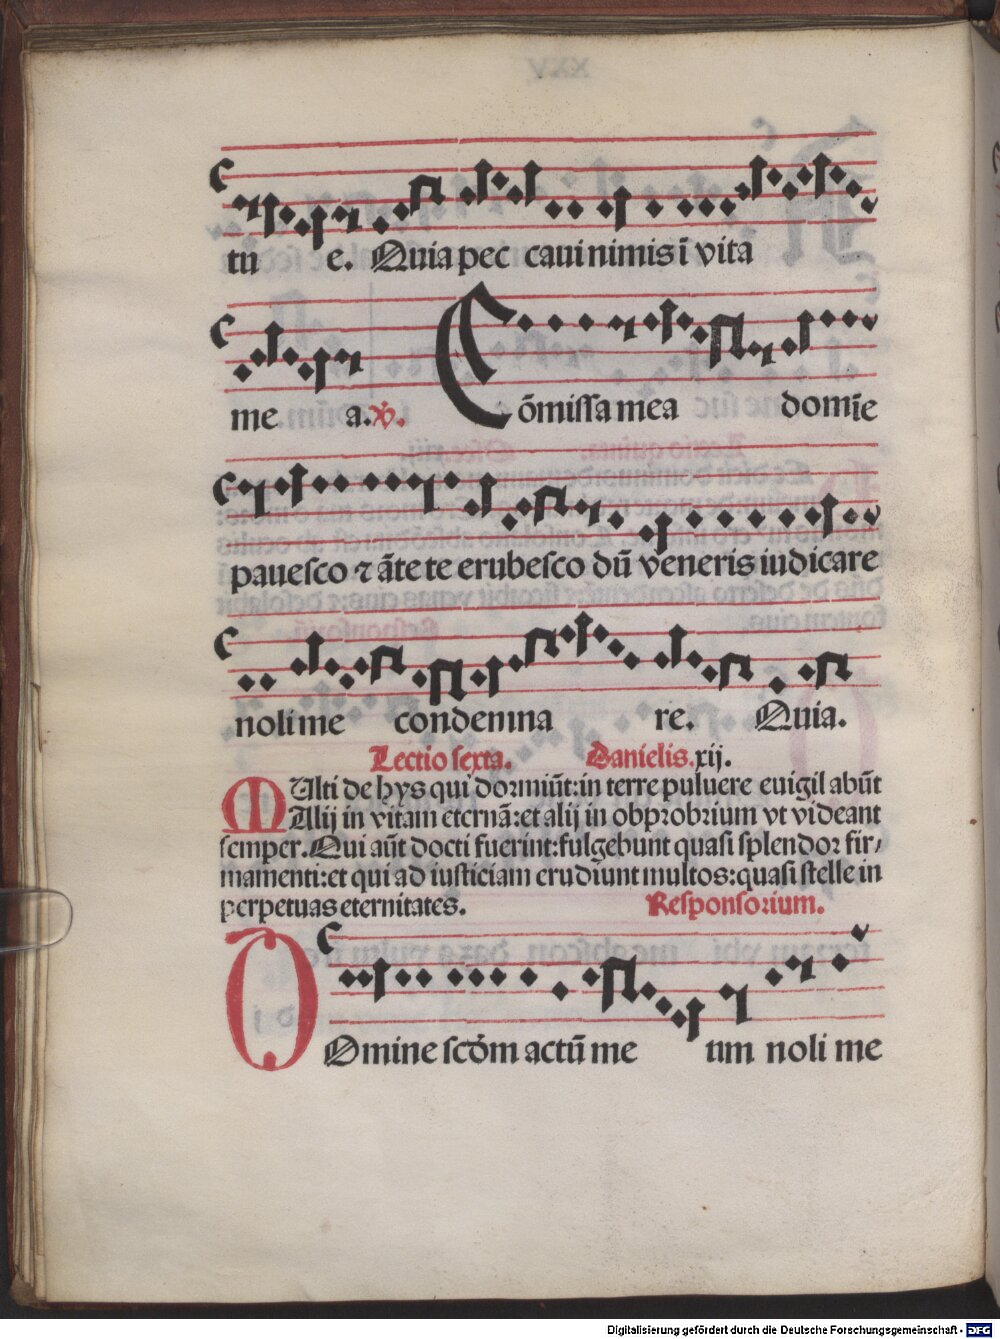 tu e. Quia pec caui nimis ī vita
me a. ꝟ. Cōmissa mea domīe
pauesco ⁊ āte te erubesco dū veneris iudicare
noli me condemna re. Quia.
Lectio sexta. Danielis. xij.
MUlti de hys qui dormiūt: in terre puluere euigilabūt
Alij in vitam eternā: et alij in obprobrium vt videant
semper. Qui aūt docti fuerint: fulgebunt quasi splendor fir/
mamenti: et qui ad iusticiam erudiunt multos: quasi stelle in
perpetuas eternitates. Responsorium.
DOmine scḋm actū me um noli me
Digitalisierung gefördert durch die Deutsche Forschungsgemeinschaft - DFG